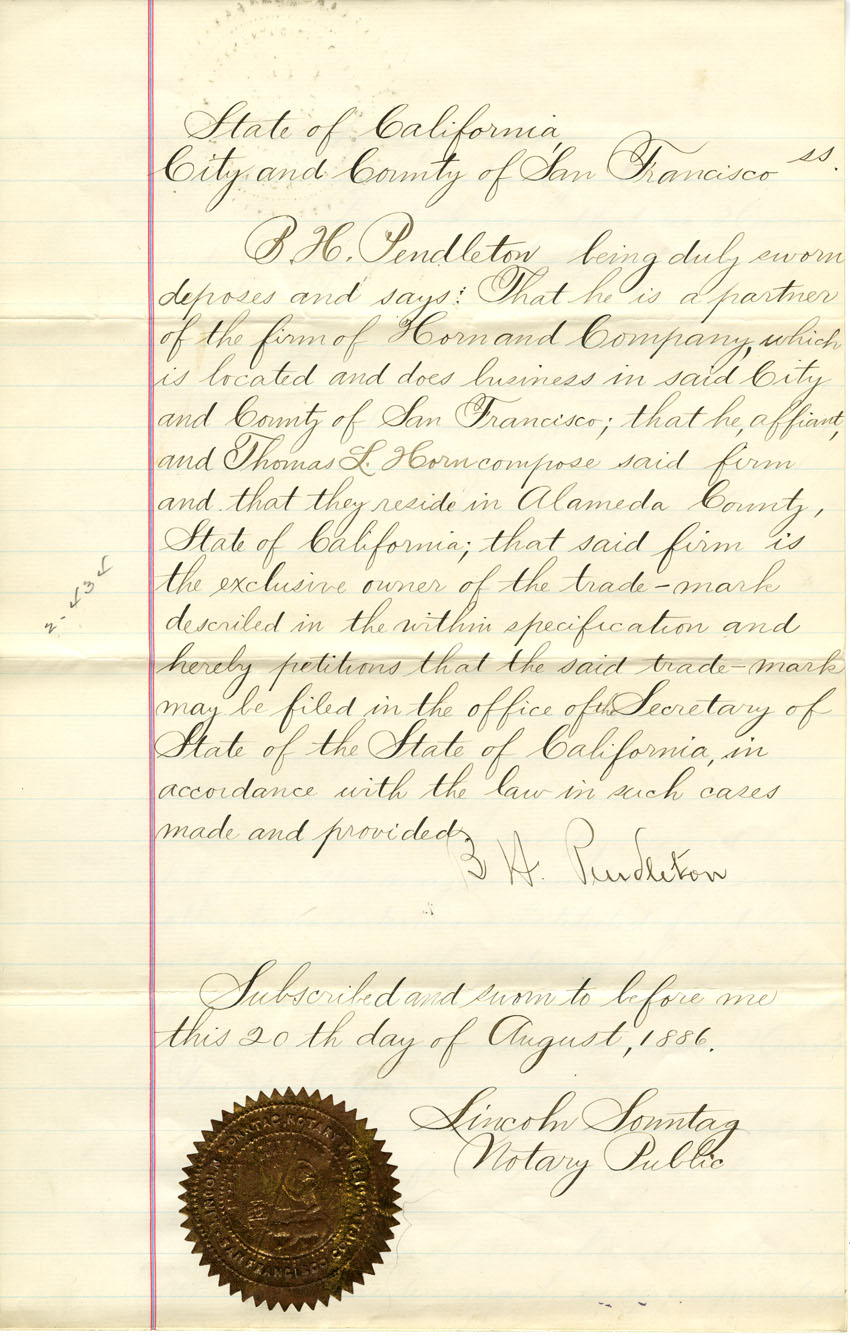 State of California,
City and County of San Francisco ss.
B. H. Pendleton being duly sworn
deposes and says: That he is a partner
of the firm of Horn and Company, which
is located and does business in said City
and County of San Francisco; that he, affiant,
and Thomas L. Horn compose said firm
and that they reside in Alameda County,
State of California; that said firm is
the exclusive owner of the trade-mark
described in the within specification and
hereby petitions that the said trade-mark
may be filed in the office of the Secretary of
State of the State of California, in
accordance with the law in such cases
made and provided.
B H. Pendleton
Subscribed and sworn to before me
this 20th day of August, 1886.
Lincoln Sonntag
Notary Public
LINCOLN SONNTAG NOTARY PUBLIC
SAN FRANCISCO